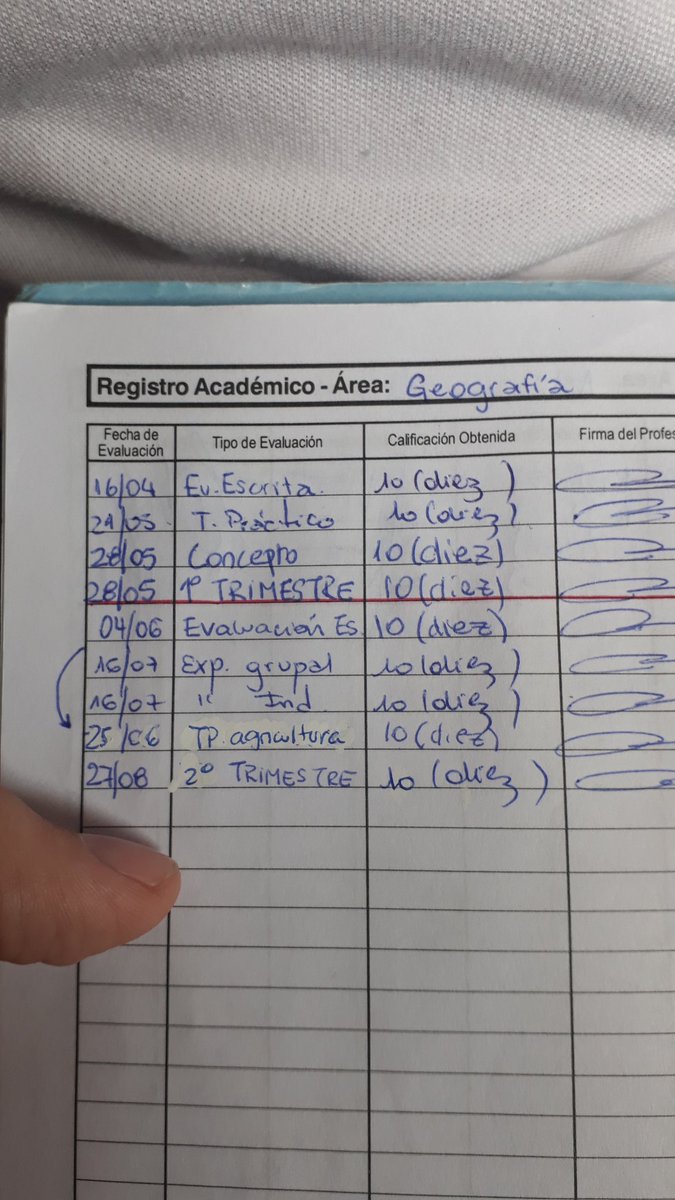 Registro Académico - Área: Geografía
Fecha de Evaluación Tipo de Evaluación Calificación Obtenida Firma del Profes
16/04 Ev. Escrita. 10 (diez)
21/05 T. Práctico 10 (diez)
28/05 Concepto 10 (diez)
28/05 1º TRIMESTRE 10 (diez)
04/06 Evaluación Es 10 (diez)
16/07 Exp. grupal 10 (diez)
16/07 " Ind 10 (diez)
25/06 TP. agricultura 10 (diez)
27/08 2º TRIMESTRE 10 (diez)